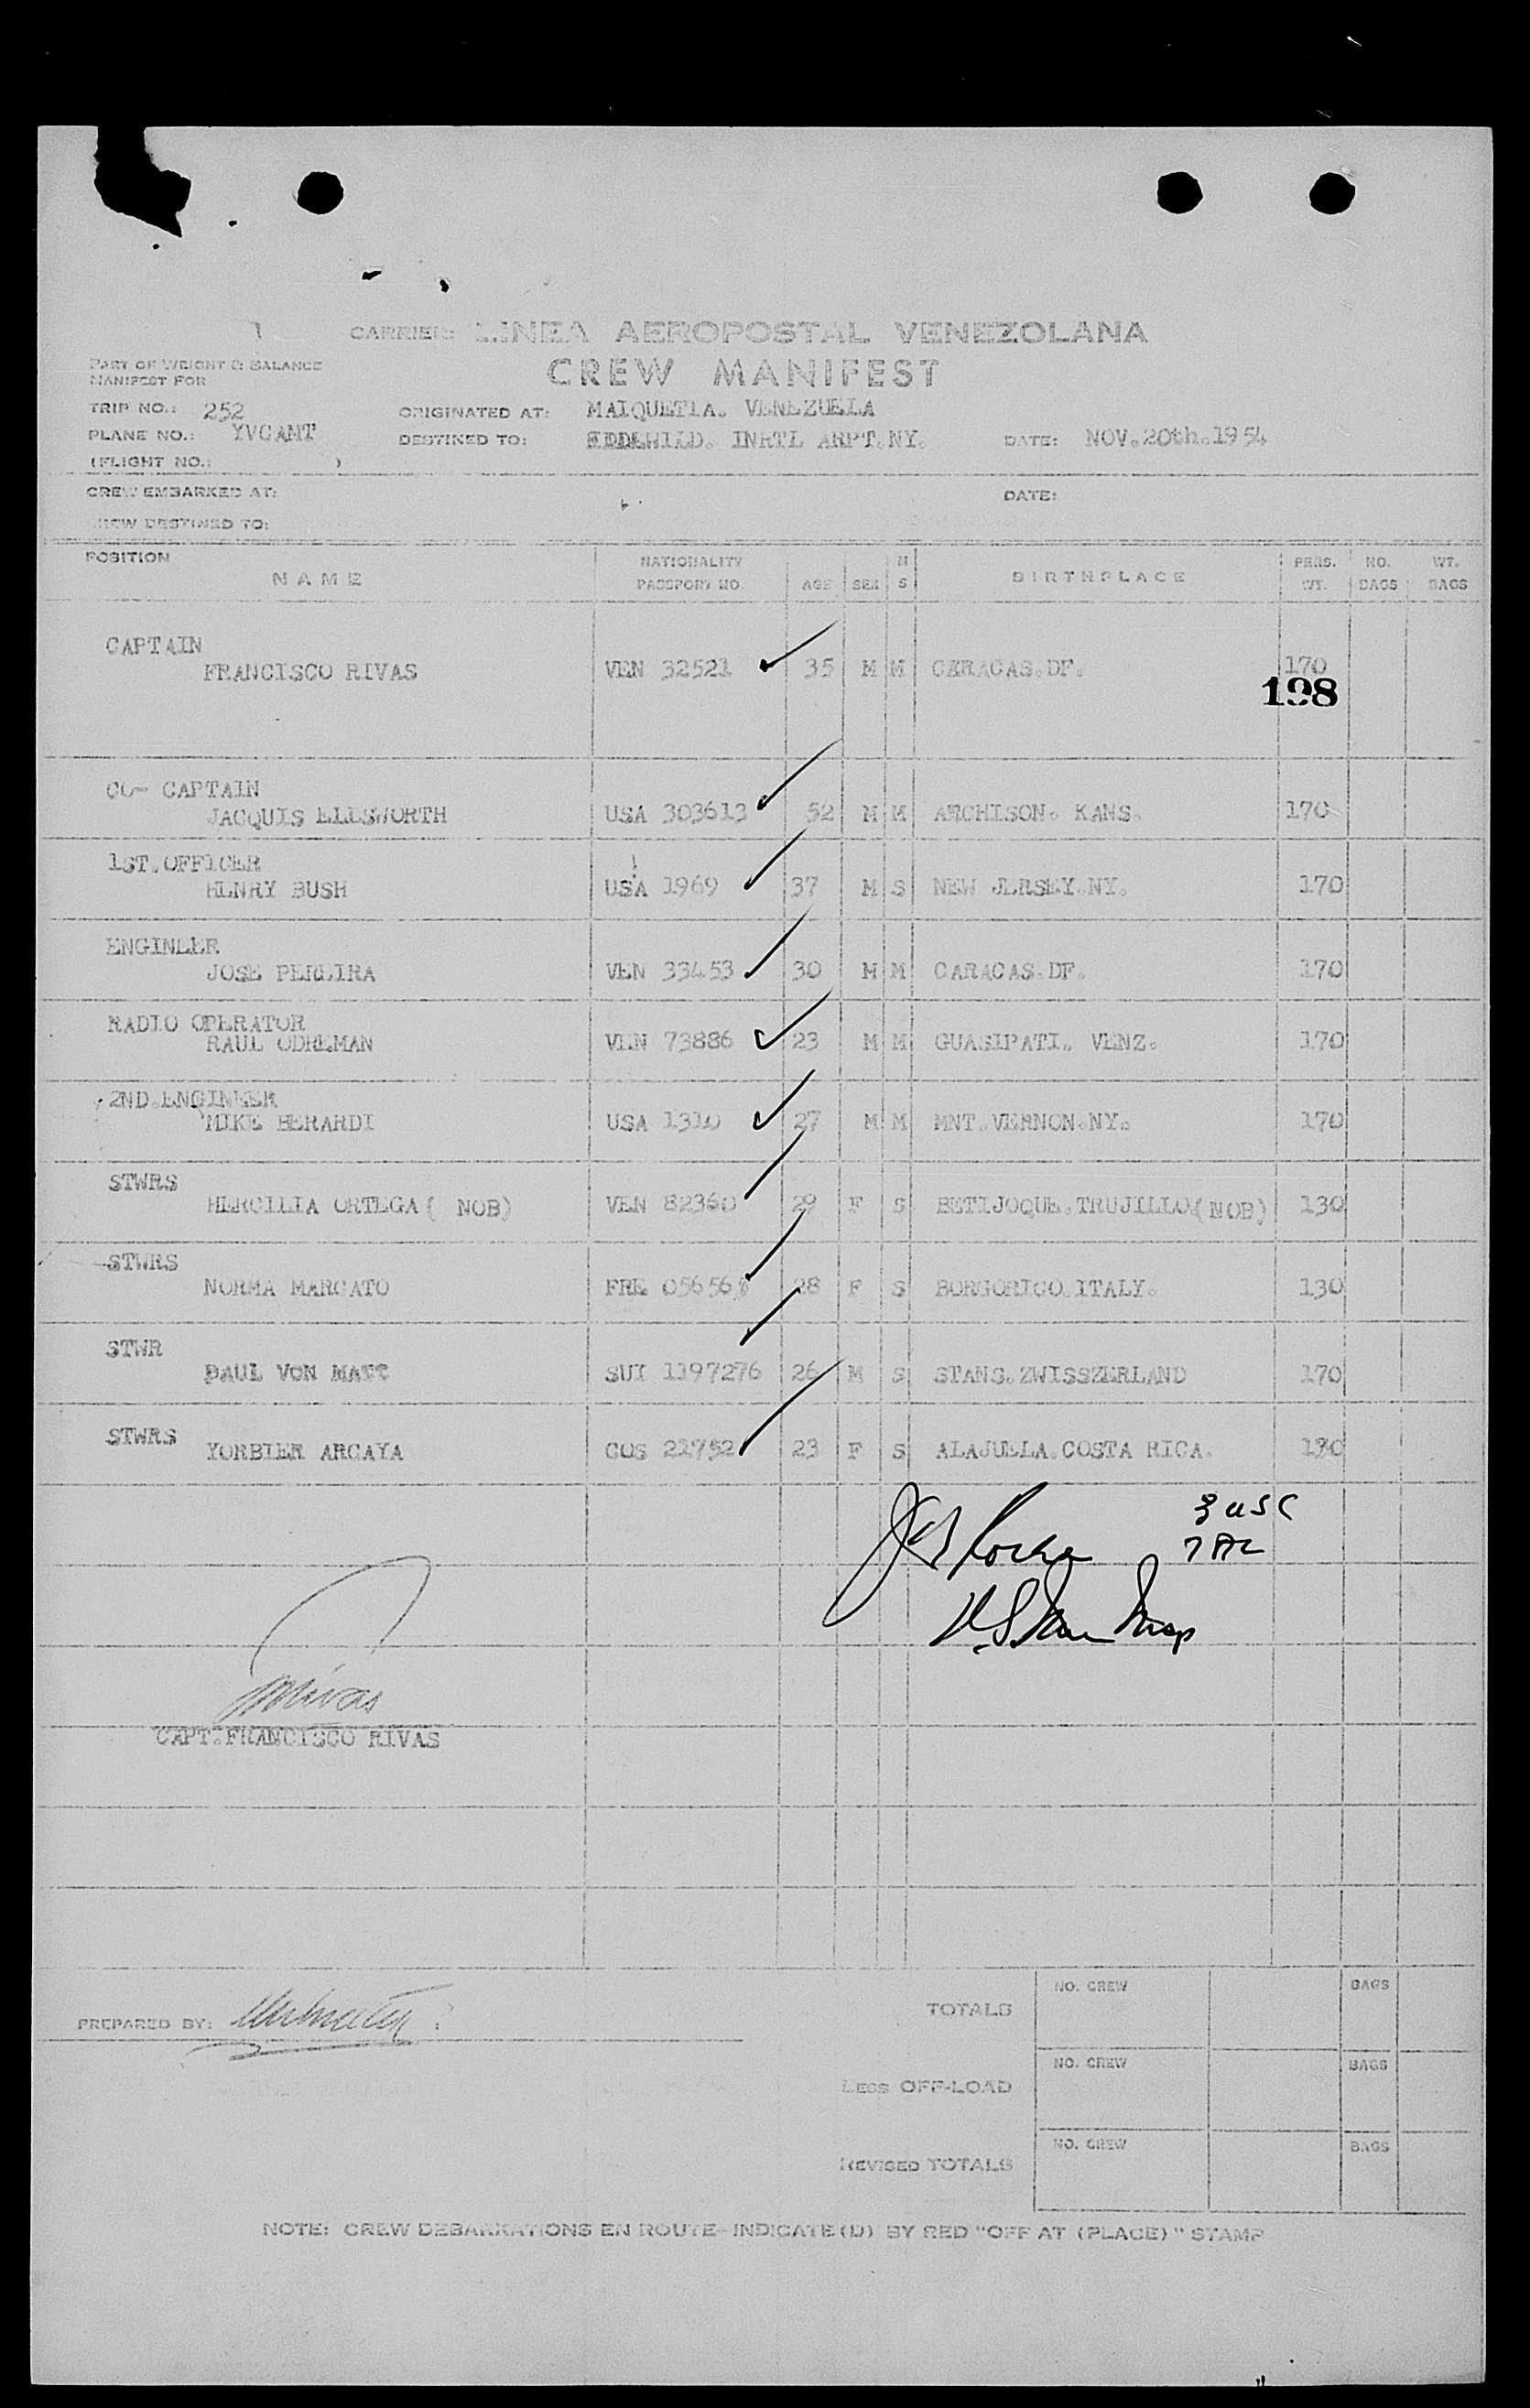 CARRIER: LINEA AEROPOSTAL VENEZOLANA
PART OF WEIGHT & BALANCE
MANIFEST FOR
CREW MANIFEST
TRIP NO.: 252 ORIGINATED AT: MAIQUETIA. VENEZUELA
PLANE NO.: YVCAMT DESTINED TO: EDDLWILD. INRTL ARPT.NY. DATE: NOV.20th.1954
(FLIGHT NO.: )
CREW EMBARKED AT: DATE:
CREW DESTINED TO:
POSITION NAME NATIONALITY PASSPORT NO. AGE SEX M S BIRTHPLACE PERS. WT. NO. BAGS WT. BAGS
CAPTAIN
FRANCISCO RIVAS VEN 32521 35 M M CARACAS.DF. 170
198
CO- CAPTAIN
JACQUIS ELLSWORTH USA 303613 52 M M ATCHISON. KANS. 170
1ST.OFFICER
HENRY BUSH USA 1969 37 M S NEW JERSEY.NY. 170
ENGINEER
JOSE PEREIRA VEN 33453 30 M M CARACAS.DF. 170
RADIO OPERATOR
RAUL ODREMAN VEN 73886 23 M M GUASIPATI. VENZ. 170
2ND.ENGINEER
MIKE BERARDI USA 1310 27 M M MNT.VERNON.NY. 170
STWRS
HERCILIA ORTEGA( NOB) VEN 82360 29 F S BETIJOQUE.TRUJILLO(NOB) 130
STWRS
NORMA MARCATO FRE 056568 28 F S BORGORICO.ITALY. 130
STWR
PAUL VON MATT SUI 1197276 26 M S STANS.ZWISSZERLAND 170
STWRS
YORBIER ARCAYA COS 21752 23 F S ALAJUELA.COSTA RICA. 130
3 USC
7 AL
Rivas
CAPT.FRANCISCO RIVAS
PREPARED BY:
TOTALS NO. CREW BAGS
LESS OFF-LOAD NO. CREW BAGS
REVISED TOTALS NO. CREW BAGS
NOTE: CREW DEBARKATIONS EN ROUTE-INDICATE (D) BY RED "OFF AT (PLACE)" STAMP